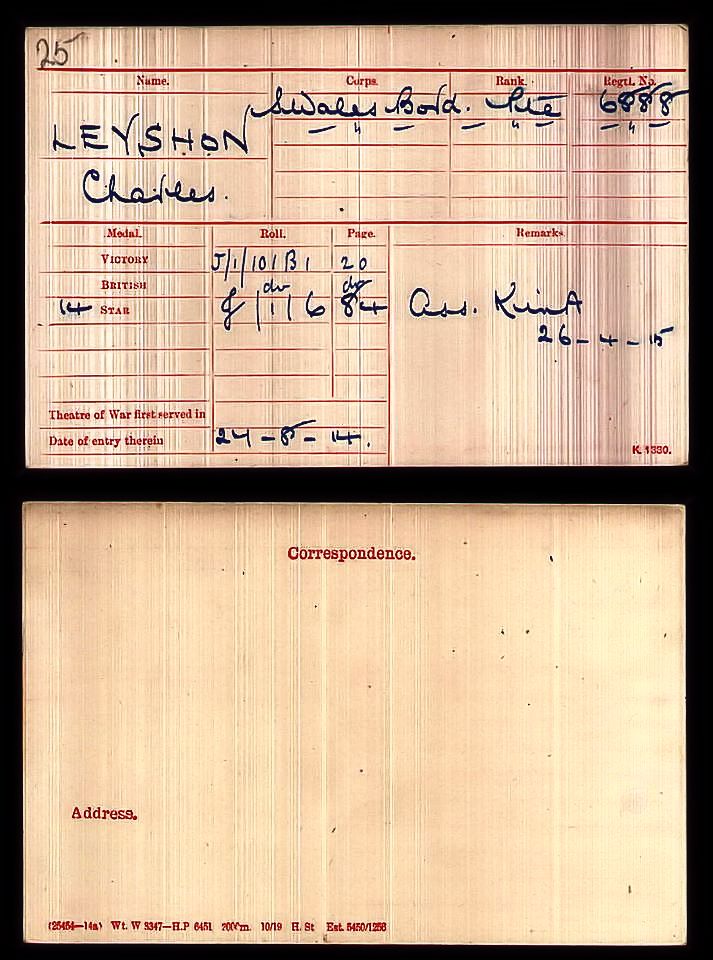 25
Name. Corps. Rank. Regtl. No.
LEYSHON S Wales Bord. Pte 6888
Charles. — " — — " — — " —
Medal. Roll. Page. Remarks
VICTORY J/1/101 B1 20
BRITISH do do
14 STAR J/1/6 84 Ass. Kin A
26-4-15
Theatre of War first served in
Date of entry therein 24-8-14.
K. 1380.
Correspondence.
Address.
(25454—14a) Wt. W 3347—H.P 6451 2000m. 10/19 H. St Est. 5450/1258